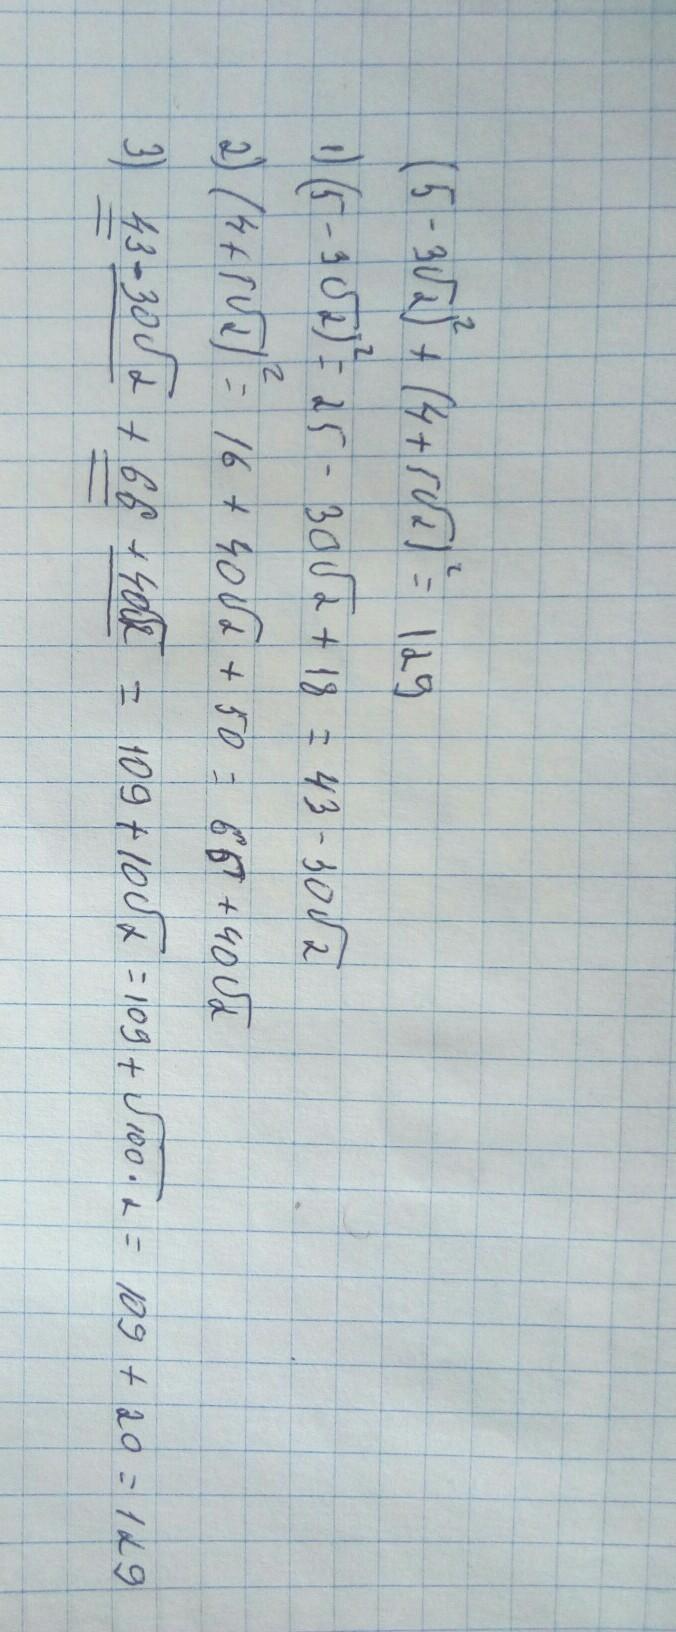 (5 - 3√2)² + (4 + 5√2)² = 129
1) (5 - 3√2)² = 25 - 30√2 + 18 = 43 - 30√2
2) (4 + 5√2)² = 16 + 40√2 + 50 = 66 + 40√2
3) 43 - 30√2 + 66 + 40√2 = 109 + 10√2 = 109 + √100·2 = 109 + 20 = 129